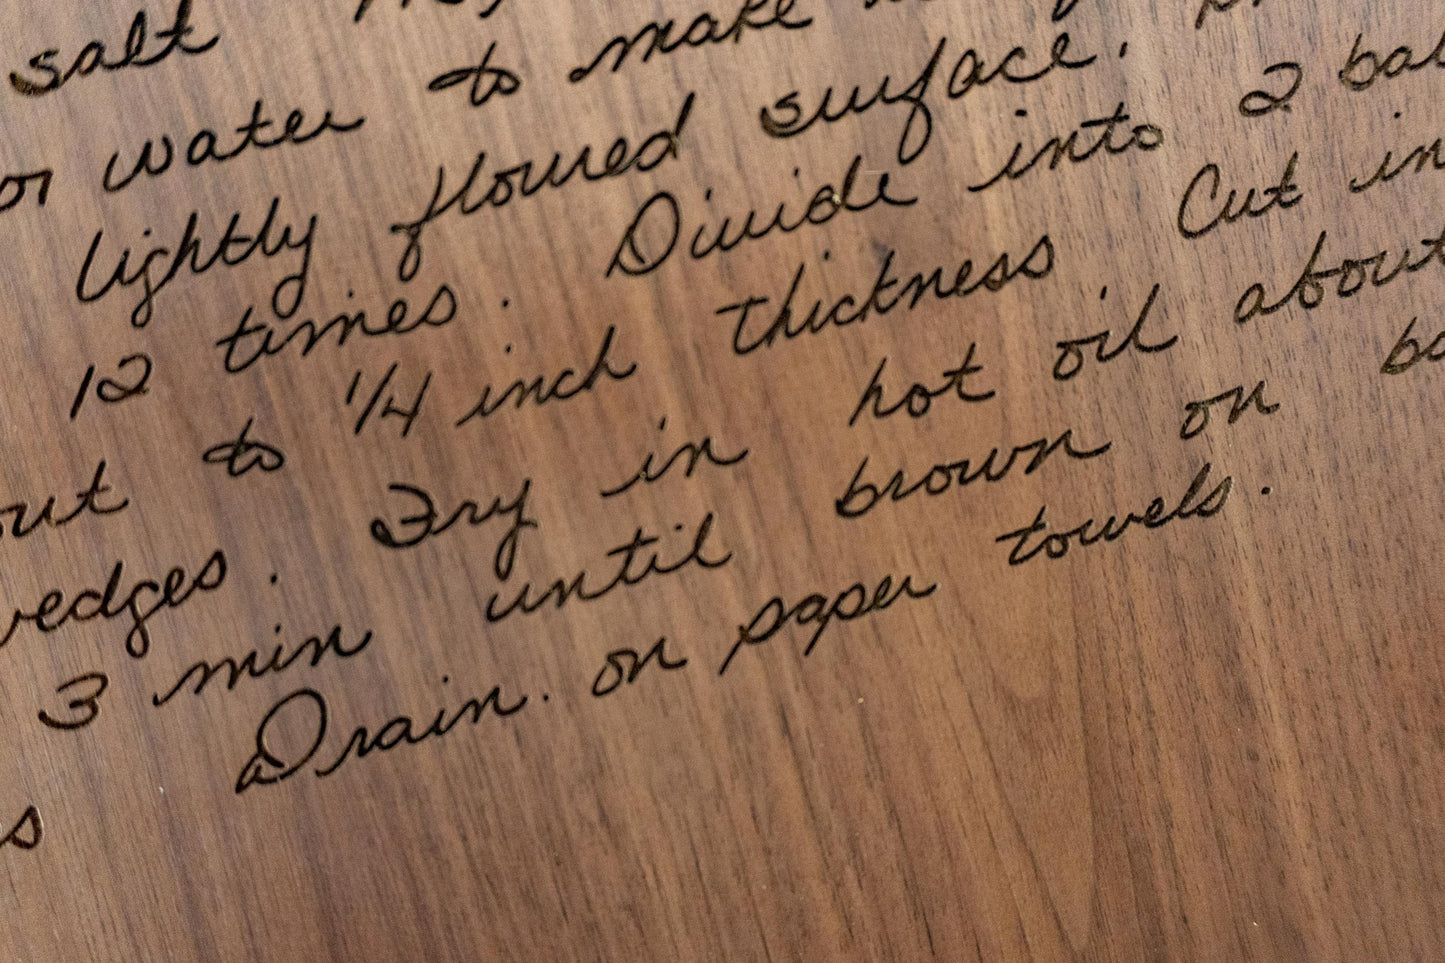 salt
or water to make
lightly floured surface.
12 times. Divide into 2
out to 1/4 inch thickness Cut in
wedges. Fry in hot oil about
3 min until brown on
Drain. on paper towels.